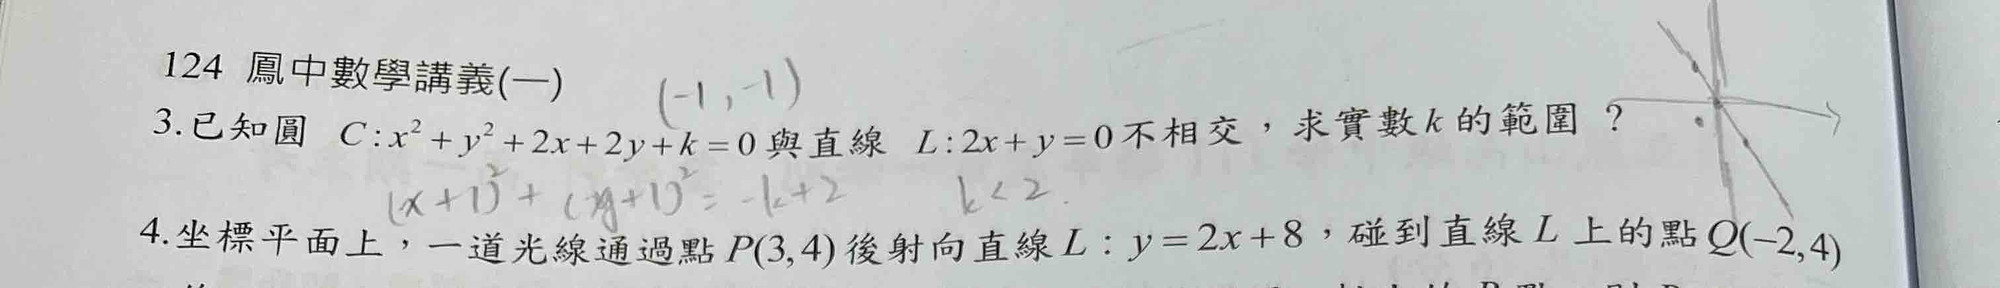 124 鳳中數學講義(一)
(-1, -1)
3.已知圓 C:x²+y²+2x+2y+k=0與直線 L:2x+y=0不相交，求實數k的範圍？
(x+1)²+(y+1)²=-k+2 k<2
4.坐標平面上，一道光線通過點P(3,4)後射向直線L：y=2x+8，碰到直線L上的點Q(−2,4)